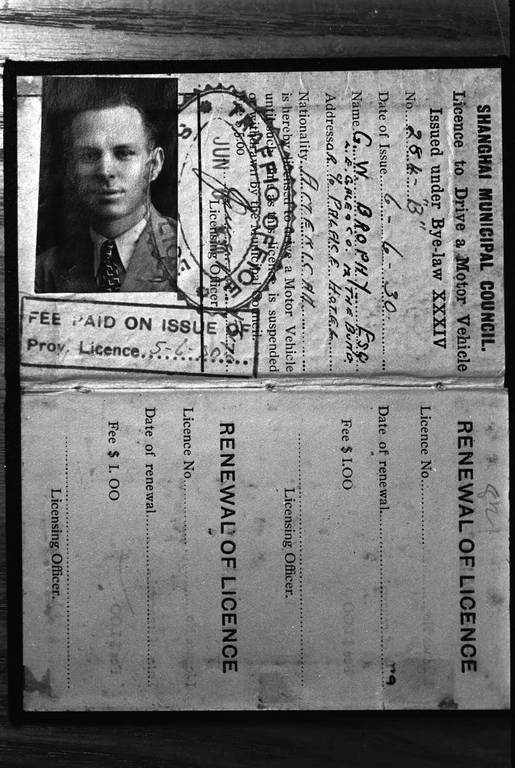 SHANGHAI MUNICIPAL COUNCIL.
Licence to Drive a Motor Vehicle
Issued under Bye-law XXXIV
No. 254-"B"
Date of Issue 6-6-30
Name G. W. BROPHY ESQ
Address PALACE HOTEL
Nationality AMERICAN
is hereby licensed to drive a Motor Vehicle
until such time as this licence is suspended
or withdrawn by the Municipal Council.
Fee $5.00
Licensing Officer
JUN
POLICE
FEE PAID ON ISSUE OF
Prov. Licence 5-6-30
RENEWAL OF LICENCE
Licence No.
Date of renewal
Fee $ 1.00
Licensing Officer.
RENEWAL OF LICENCE
Licence No.
Date of renewal
Fee $ 1.00
Licensing Officer.